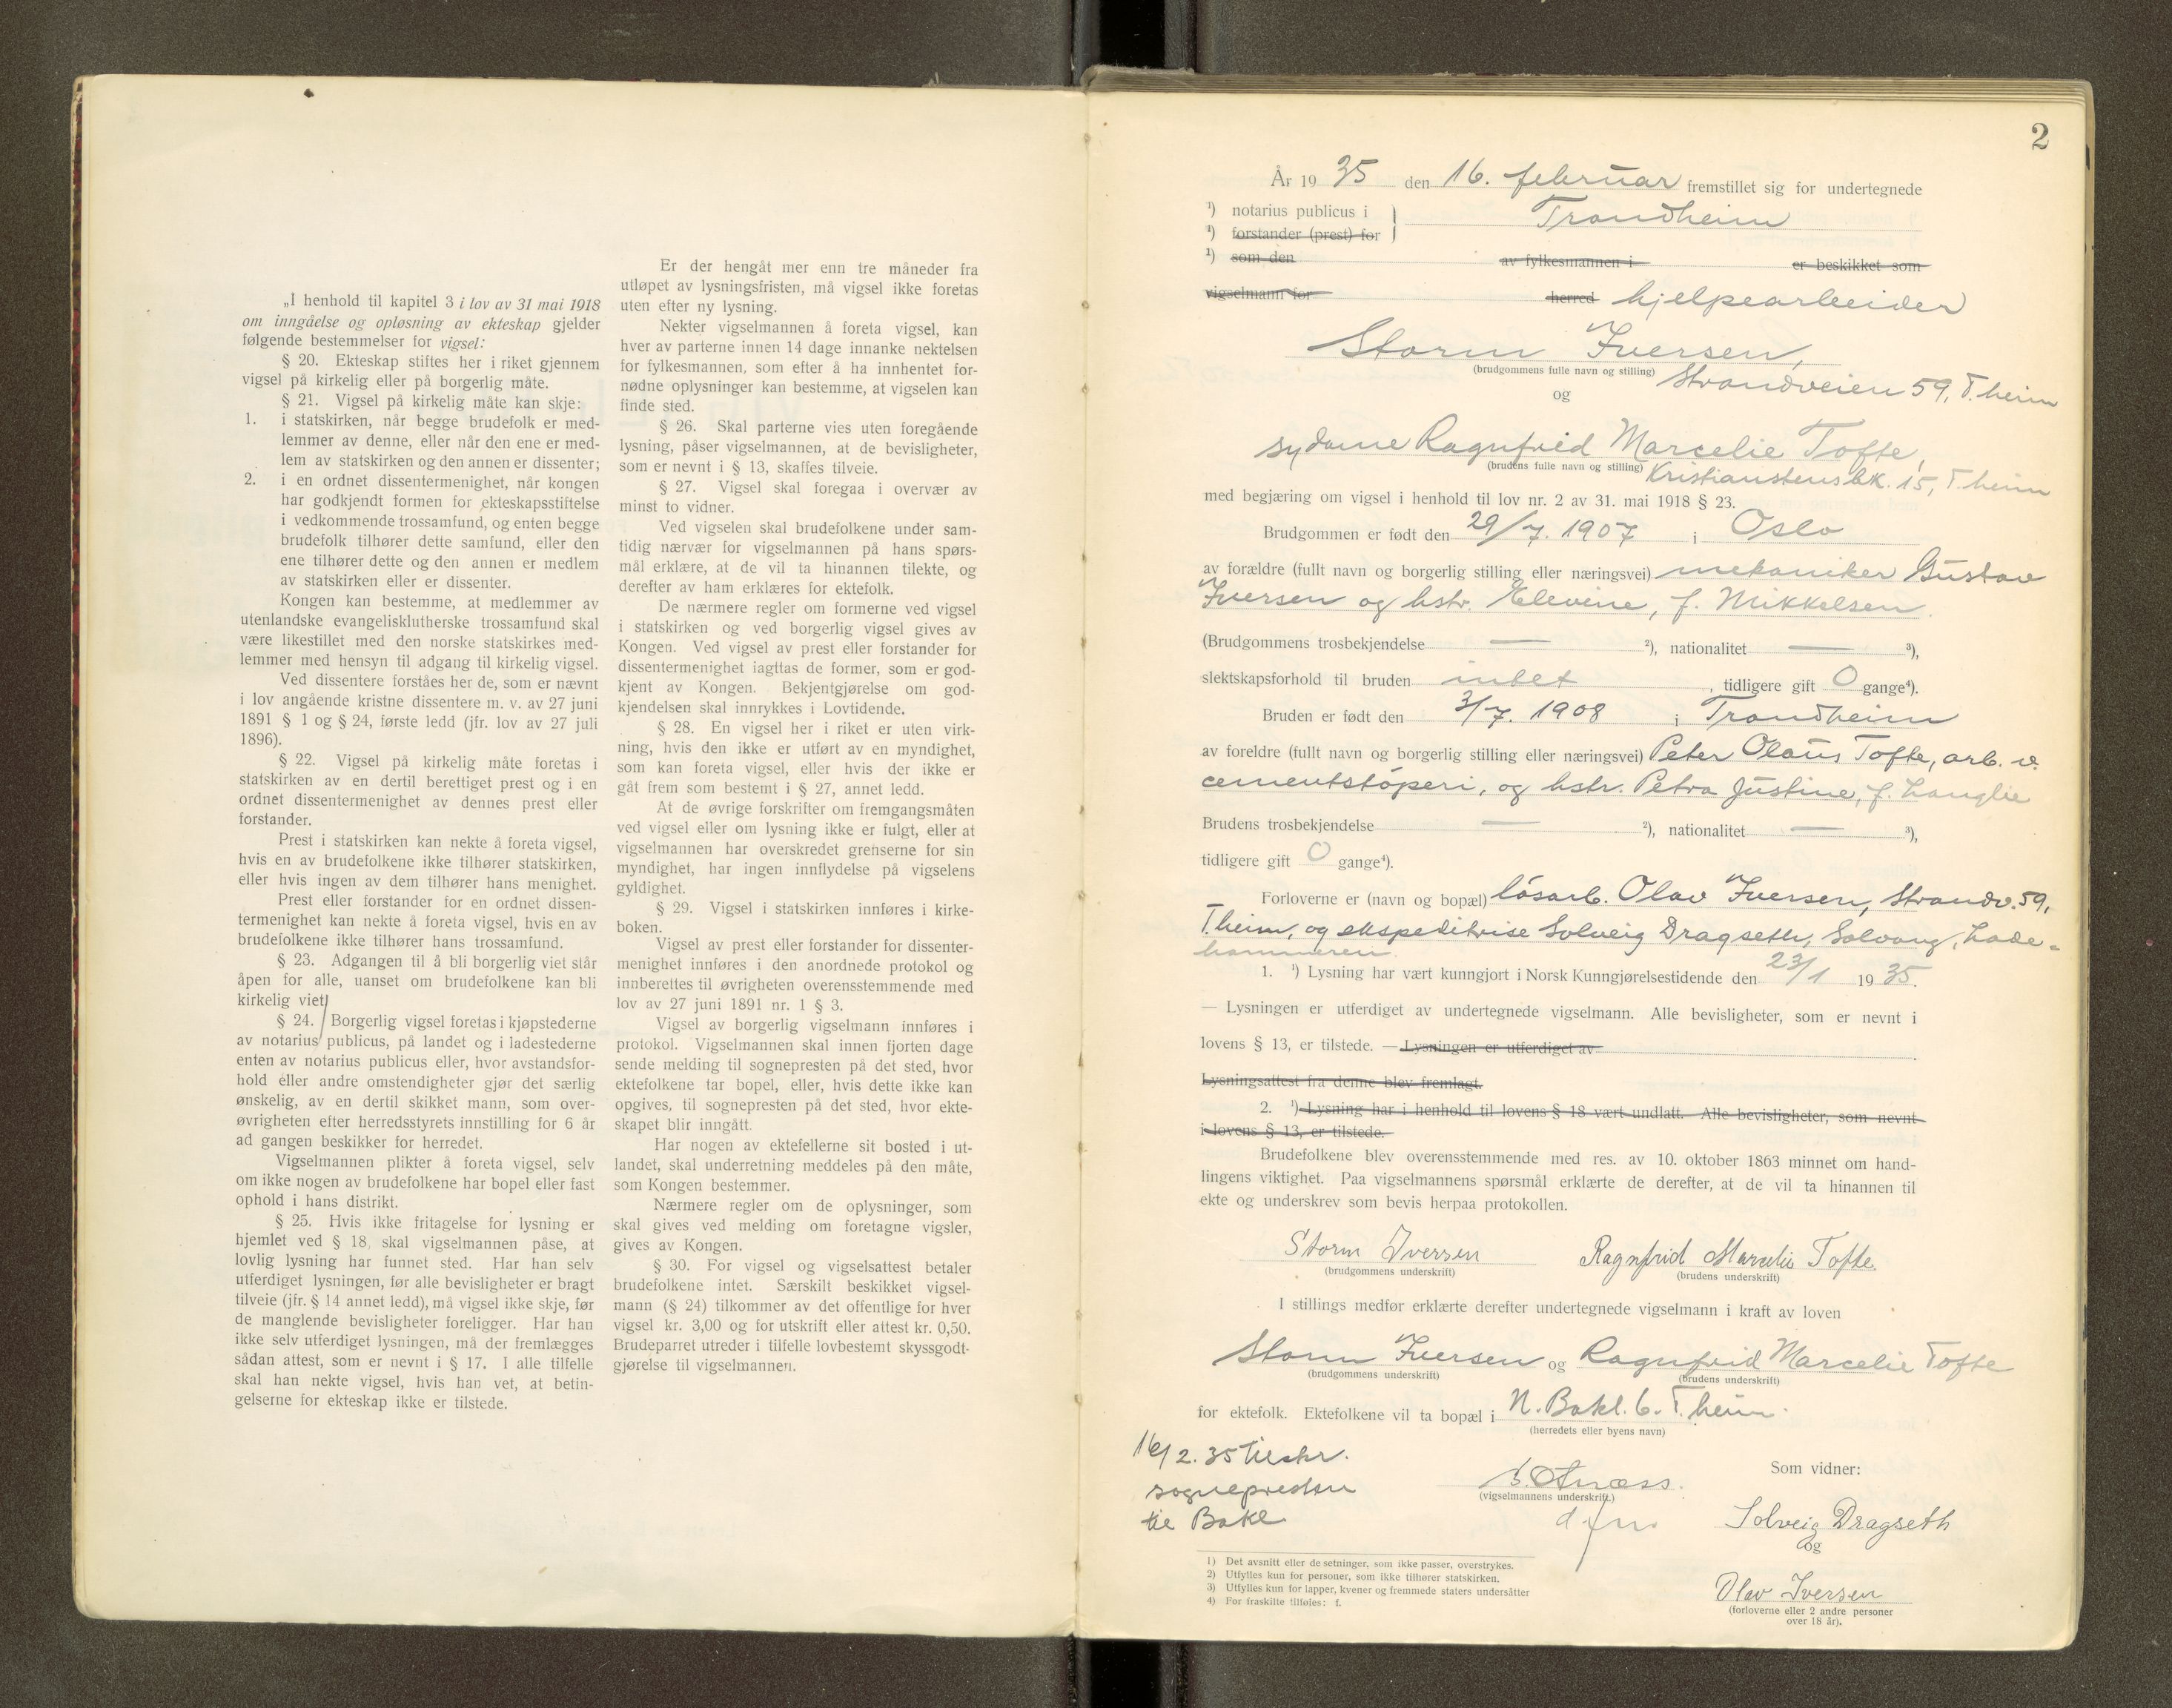 „I henhold til kapitel 3 i lov av 31 mai 1918
om inngåelse og opløsning av ekteskap gjelder
følgende bestemmelser for vigsel:
§ 20. Ekteskap stiftes her i riket gjennem
vigsel på kirkelig eller på borgerlig måte.
§ 21. Vigsel på kirkelig måte kan skje:
1. i statskirken, når begge brudefolk er med-
lemmer av denne, eller når den ene er med-
lem av statskirken og den annen er dissenter;
2. i en ordnet dissentermenighet, når kongen
har godkjendt formen for ekteskapsstiftelse
i vedkommende trossamfund, og enten begge
brudefolk tilhører dette samfund, eller den
ene tilhører dette og den annen er medlem
av statskirken eller er dissenter.
Kongen kan bestemme, at medlemmer av
utenlandske evangelisklutherske trossamfund skal
være likestillet med den norske statskirkes med-
lemmer med hensyn til adgang til kirkelig vigsel.
Ved dissentere forståes her de, som er nævnt
i lov angående kristne dissentere m. v. av 27 juni
1891 § 1 og § 24, første ledd (jfr. lov av 27 juli
1896).
§ 22. Vigsel på kirkelig måte foretas i
statskirken av en dertil berettiget prest og i en
ordnet dissentermenighet av dennes prest eller
forstander.
Prest i statskirken kan nekte å foreta vigsel,
hvis en av brudefolkene ikke tilhører statskirken,
eller hvis ingen av dem tilhører hans menighet.
Prest eller forstander for en ordnet dissen-
termenighet kan nekte å foreta vigsel, hvis en av
brudefolkene ikke tilhører hans trossamfund.
§ 23. Adgangen til å bli borgerlig viet står
åpen for alle, uanset om brudefolkene kan bli
kirkelig viet.
§ 24. Borgerlig vigsel foretas i kjøpstederne
av notarius publicus, på landet og i ladestederne
enten av notarius publicus eller, hvor avstandsfor-
hold eller andre omstendigheter gjør det særlig
ønskelig, av en dertil skikket mann, som over-
øvrigheten efter herredsstyrets innstilling for 6 år
ad gangen beskikker for herredet.
Vigselmannen plikter å foreta vigsel, selv
om ikke nogen av brudefolkene har bopel eller fast
ophold i hans distrikt.
§ 25. Hvis ikke fritagelse for lysning er
hjemlet ved § 18, skal vigselmannen påse, at
lovlig lysning har funnet sted. Har han selv
utferdiget lysningen, før alle bevisligheter er bragt
tilveie (jfr. § 14 annet ledd), må vigsel ikke skje, før
de manglende bevisligheter foreligger. Har han
ikke selv utferdiget lysningen, må der fremlægges
sådan attest, som er nevnt i § 17. I alle tilfelle
skal han nekte vigsel, hvis han vet, at betin-
gelserne for ekteskap ikke er tilstede.
Er der hengåt mer enn tre måneder fra
utløpet av lysningsfristen, må vigsel ikke foretas
uten efter ny lysning.
Nekter vigselmannen å foreta vigsel, kan
hver av parterne innen 14 dage innanke nektelsen
for fylkesmannen, som efter å ha innhentet for-
nødne oplysninger kan bestemme, at vigselen kan
finde sted.
§ 26. Skal parterne vies uten foregående
lysning, påser vigselmannen, at de bevisligheter,
som er nevnt i § 13, skaffes tilveie.
§ 27. Vigsel skal foregaa i overvær av
minst to vidner.
Ved vigselen skal brudefolkene under sam-
tidig nærvær for vigselmannen på hans spørs-
mål erklære, at de vil ta hinannen tilekte, og
derefter av ham erklæres for ektefolk.
De nærmere regler om formerne ved vigsel
i statskirken og ved borgerlig vigsel gives av
Kongen. Ved vigsel av prest eller forstander for
dissentermenighet iagttas de former, som er god-
kjent av Kongen. Bekjentgjørelse om god-
kjendelsen skal innrykkes i Lovtidende.
§ 28. En vigsel her i riket er uten virk-
ning, hvis den ikke er utført av en myndighet,
som kan foreta vigsel, eller hvis der ikke er
gåt frem som bestemt i § 27, annet ledd.
At de øvrige forskrifter om fremgangsmåten
ved vigsel eller om lysning ikke er fulgt, eller at
vigselmannen har overskredet grenserne for sin
myndighet, har ingen innflydelse på vigselens
gyldighet.
§ 29. Vigsel i statskirken innføres i kirke-
boken.
Vigsel av prest eller forstander for dissenter-
menighet innføres i den anordnede protokol og
innberettes til øvrigheten overensstemmende med
lov av 27 juni 1891 nr. 1 § 3.
Vigsel av borgerlig vigselmann innføres i
protokol. Vigselmannen skal innen fjorten dage
sende melding til sognepresten på det sted, hvor
ektefolkene tar bopel, eller, hvis dette ikke kan
opgives, til sognepresten på det sted, hvor ekte-
skapet blir inngått.
Har nogen av ektefellerne sit bosted i ut-
landet, skal underretning meddeles på den måte,
som Kongen bestemmer.
Nærmere regler om de oplysninger, som
skal gives ved melding om foretagne vigsler,
gives av Kongen.
§ 30. For vigsel og vigselsattest betaler
brudefolkene intet. Særskilt beskikket vigsel-
mann (§ 24) tilkommer av det offentlige for hver
vigsel kr. 3,00 og for utskrift eller attest kr. 0,50.
Brudeparret utreder i tilfelle lovbestemt skyssgodt-
gjørelse til vigselmannen.
2
År 1935 den 16. februar fremstillet sig for undertegnede
¹) notarius publicus i Trondheim
¹) forstander (prest) for
¹) som den av fylkesmannen i er beskikket som
vigselmann for herred hjelpearbeider
Storm Iversen,
(brudgommens fulle navn og stilling) Strandveien 59, T.heim
og
sydame Ragnfrid Marcelie Tofte,
(brudens fulle navn og stilling) Kristianstensbk. 15, T.heim
med begjæring om vigsel i henhold til lov nr. 2 av 31. mai 1918 § 23.
Brudgommen er født den 29/7. 1907 i Oslo
av forældre (fullt navn og borgerlig stilling eller næringsvei) mekaniker Gustav
Iversen og hstr. Elevine, f. Mikkelsen.
(Brudgommens trosbekjendelse — ²), nationalitet — ³),
slektskapsforhold til bruden intet, tidligere gift 0 gange⁴).
Bruden er født den 3/7. 1908 i Trondheim
av foreldre (fullt navn og borgerlig stilling eller næringsvei) Peter Olaus Tofte, arb. v.
cementstøperi, og hstr. Petra Justine, f. Langlie
Brudens trosbekjendelse — ²), nationalitet — ³),
tidligere gift 0 gange⁴).
Forloverne er (navn og bopæl) løsarb. Olav Iversen, Strandv. 59,
T.heim, og ekspeditrise Solveig Dragseth, Solvang, Lade-
hammeren.
1. ¹) Lysning har vært kunngjort i Norsk Kunngjørelsestidende den 23/1 1935.
— Lysningen er utferdiget av undertegnede vigselmann. Alle bevisligheter, som er nevnt i
lovens § 13, er tilstede. — Lysningen er utferdiget av
Lysningsattest fra denne blev fremlagt.
2. ¹) Lysning har i henhold til lovens § 18 vært undlatt. Alle bevisligheter, som nevnt
i lovens § 13, er tilstede.
Brudefolkene blev overensstemmende med res. av 10. oktober 1863 minnet om hand-
lingens viktighet. Paa vigselmannens spørsmål erklærte de derefter, at de vil ta hinannen til
ekte og underskrev som bevis herpaa protokollen.
Storm Iversen Ragnfrid Marcelie Tofte.
(brudgommens underskrift) (brudens underskrift)
I stillings medfør erklærte derefter undertegnede vigselmann i kraft av loven
Storm Iversen og Ragnfrid Marcelie Tofte
(brudgommens underskrift) (brudens underskrift)
for ektefolk. Ektefolkene vil ta bopæl i N. Bakl. 6. T.heim.
(herredets eller byens navn)
16/2. 35 tilskr.
sognepresten
til Bakl.
(vigselmannens underskrift)
Som vidner:
Solveig Dragseth
og
Olav Iversen
(forloverne eller 2 andre personer
over 18 år).
1) Det avsnitt eller de setninger, som ikke passer, overstrykes.
2) Utfylles kun for personer, som ikke tilhører statskirken.
3) Utfylles kun for lapper, kvener og fremmede staters undersåtter
4) For fraskilte tilføies: f.